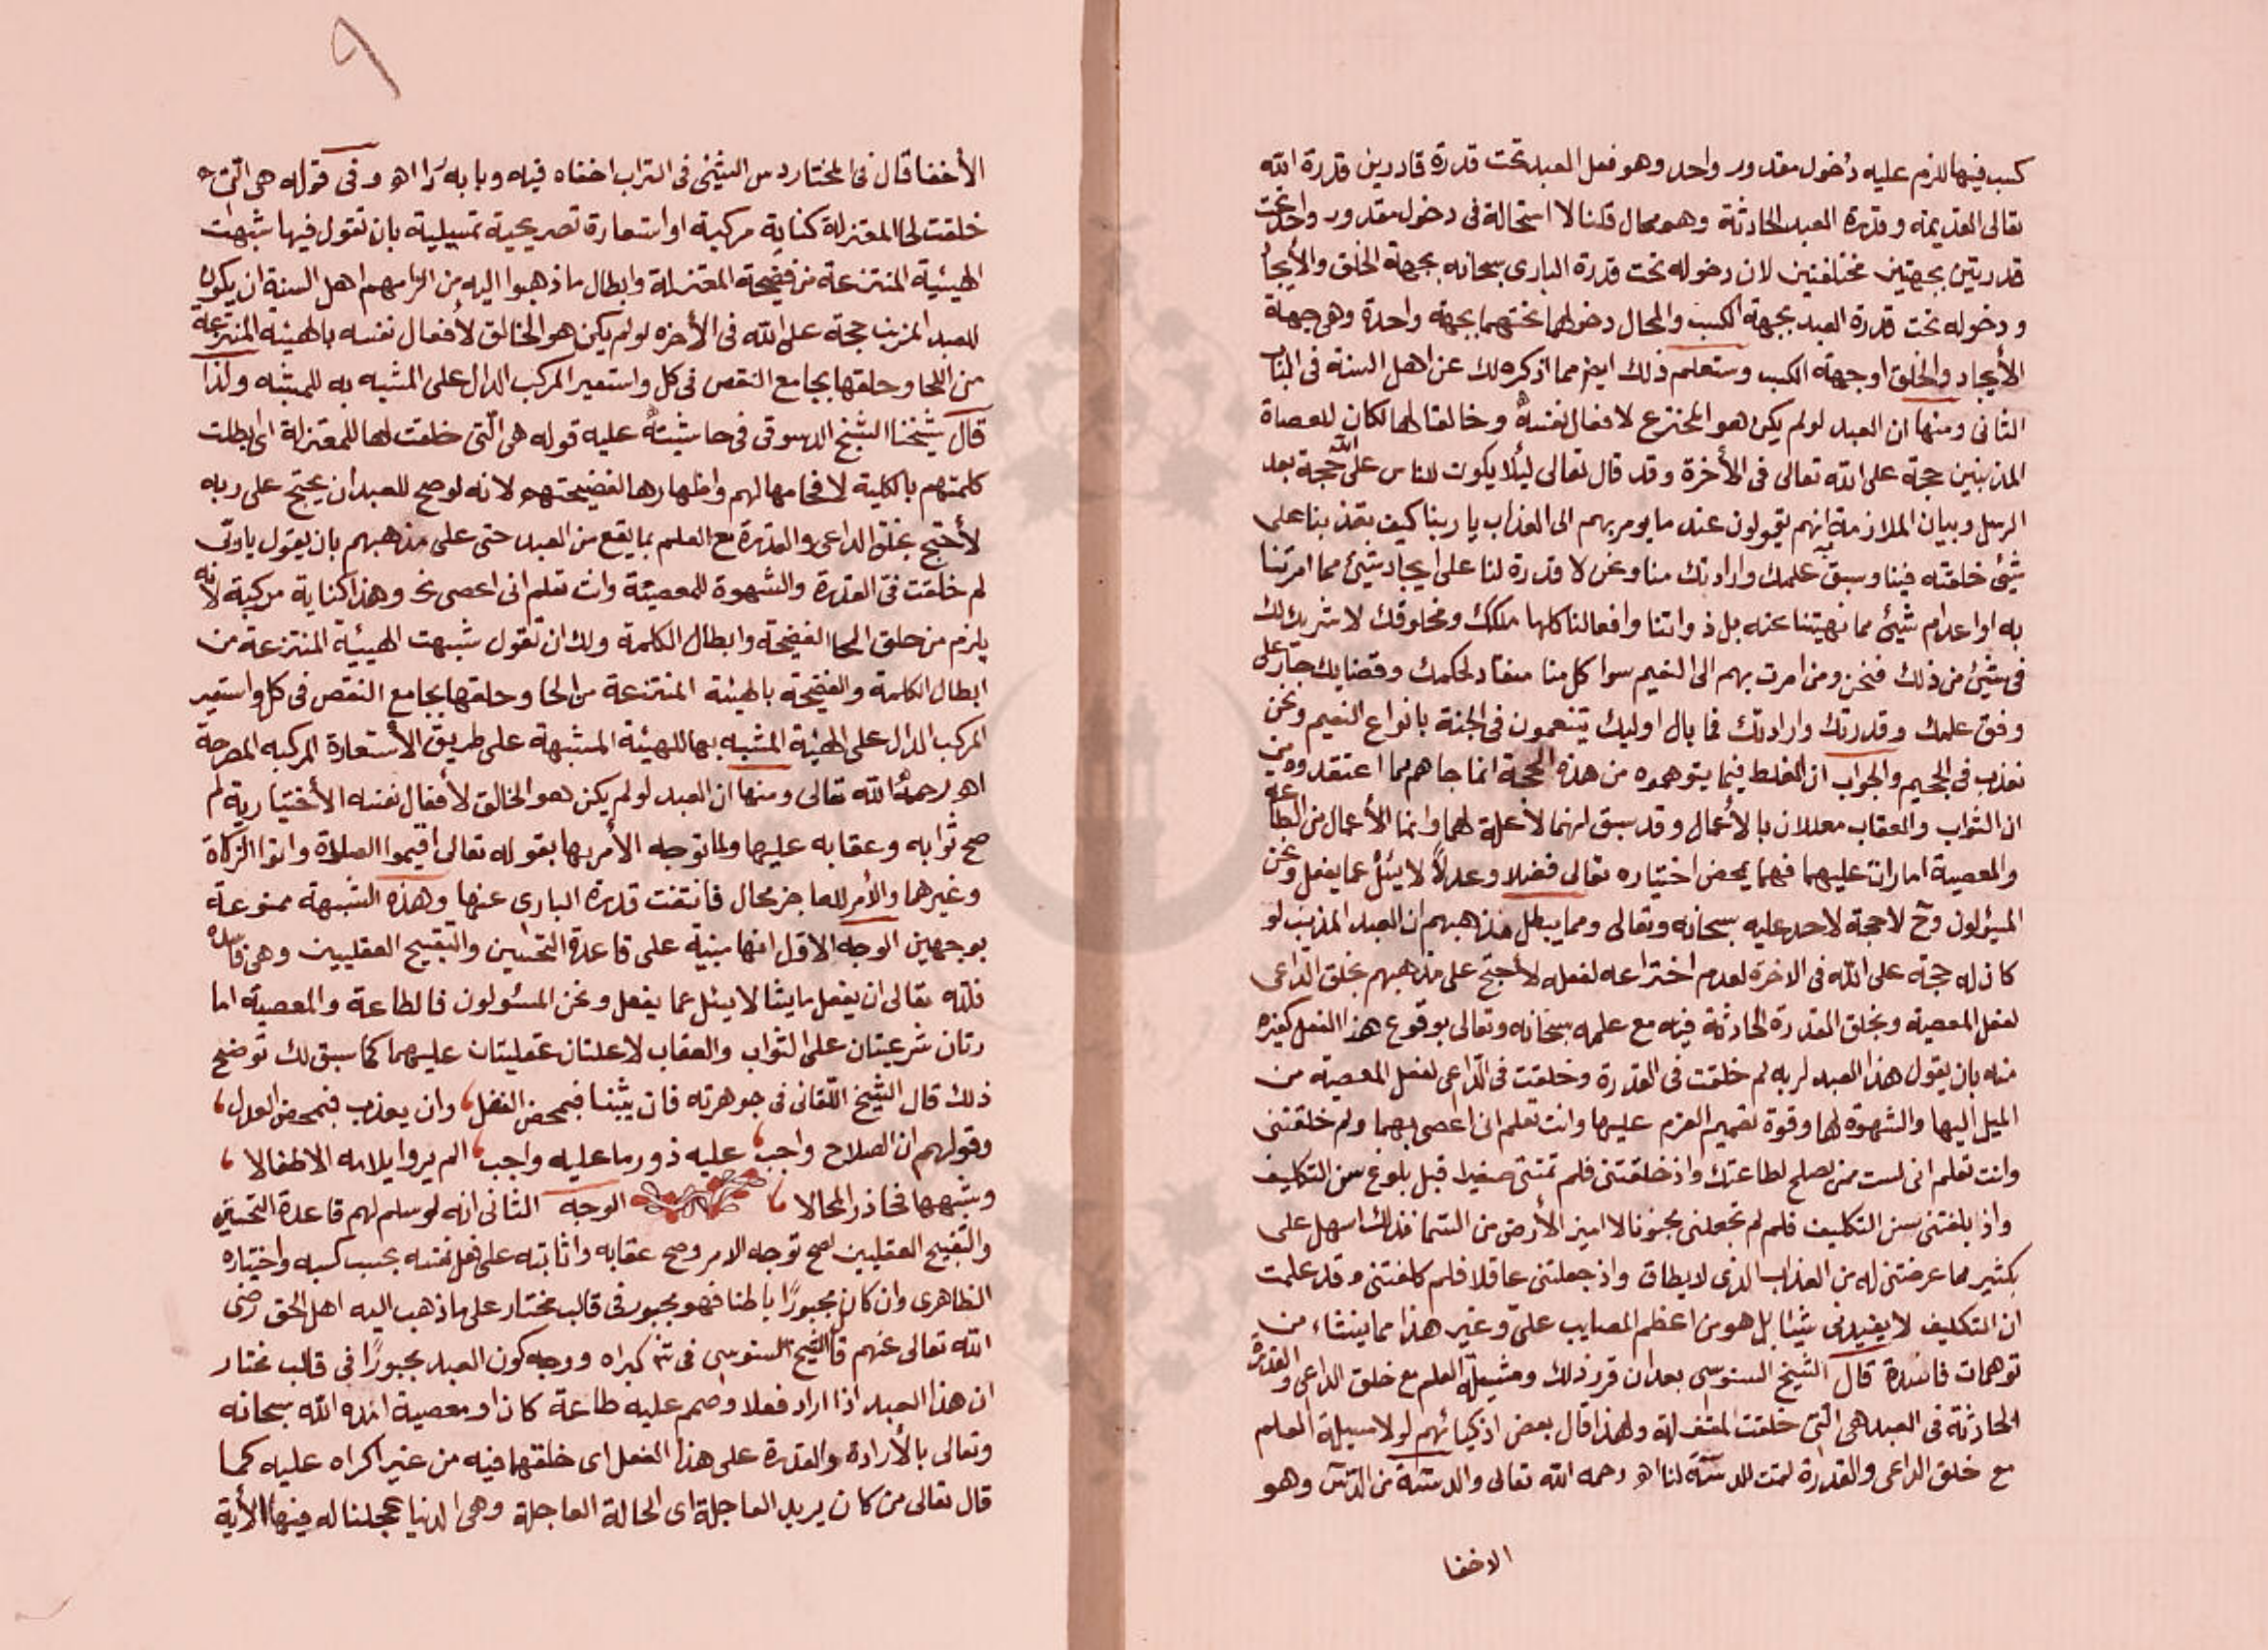 كسب فيها للزم عليه دخول مقدور واحد وهو فعل العبد تحت قدرة قادرين قدرة الله
تعالى القديمة وقدرة العبد الحادثة وهو محال قلنا لا استحالة فى دخول مقدور واحد تحت
قدرتين بجهتين مختلفتين لان دخوله تحت قدرة البارى سبحانه بجهة الخلق والأيجاد
ودخوله تحت قدرة العبد بجهة الكسب والمحال دخولهما تحتهما بجهة واحدة وهى جهة
الأيجاد والخلق او جهة الكسب وستعلم ذلك ايض مما اذكره لك عن اهل السنة فى المبحث
الثانى ومنها ان العبد لو لم يكن هو المخترع لافعال نفسه وخالقا لها لكان للعصاة
المذنبين حجة على الله تعالى فى الأخرة وقد قال تعالى ليئلا يكون للناس على الله حجة بعد
الرسل وبيان الملازمة انهم يقولون عند ما يومر بهم الى العذاب يا ربنا كيف تعذبنا على
شئ خلقته فينا وسبق به علمك وارادتك منا ونحن لا قدرة لنا على ايجاد شئ مما امرتنا
به او اعدام شيئ مما نهيتنا عنه بل ذواتنا وافعالنا كلها ملكك ومخلوقك لا شريك لك
فى شئ من ذلك فنحن ومن امرت بهم الى النعيم سوا كل منا منقاد لحكمك وقضايك جار على
وفق علمك وقدرتك وارادتك فما بال اوليك يتنعمون فى الجنة بانواع النعيم ونحن
نعذب فى الجحيم والجواب ان الغلط فيما يتوهموه من هذه الحجة انما جاهم بما اعتقدوه من
ان الثواب والعقاب معللان بالأعمال وقد سبق انهما لا علة لهما وانما الأعمال من الطاعة
والمعصية امارات عليهما فهما بمحض اختياره تعالى فضلا وعدلاً لا يسئل عما يفعل ونحن
المسئولون وح لا حجة لاحد عليه سبحانه وتعالى ومما يبطل مذهبهم ان العبد المذنب لو
كان له حجة على الله فى الاخرة لعدم اختراعه لفعله لأحتج على مذهبهم بخلق الداعى
لفعل المعصية وبخلق القدرة الحادثة فيه مع علمه سبحانه وتعالى بوقوع هذا الفعل كغيره
منه بان يقول هذا العبد لربه لم خلقت فى القدرة وخلقت فى الداعى لفعل المعصية من
الميل اليها والشهوة لها وقوة تصميم العزم عليها وانت تعلم انى اعصى بهما ولم خلقتنى
وانت تعلم انى لست ممن يصلح لطاعتك واذ خلقتنى فلم لم تمتنى صغيرا قبل بلوغ سن التكليف
واذ بلغتنى سن التكليف فلم لم تجعلنى مجنونا لا اميز الأرض من السما فذلك اسهل على
بكثير مما عرضتنى له من العذاب الذى لا يطاق واذ جعلتنى عاقلا فلم كلفتنى وقد علمت
ان التكليف لا يفيدنى شيئا بل هو من اعظم المصايب علىّ وغير هذا مما ينشاء من
توهمات فاسدة قال الشيخ السنوسى بعد ان قرر ذلك ومسيلة العلم مع خلق الداعى والقدرة
الحادثة فى العبد هى التى خلقت المعتزلة ولهذا قال بعض اذكيائهم لولا مسيلة العلم
مع خلق الداعى والقدرة لتمت الدسة لنا اه رحمه الله تعالى والدسة من الدس وهو
الاخفا
٩
الأخفا قال فى المختار دس الشيئ فى التراب اخفاه فيه وبابه رد اه وفى قوله هى التى
خلقت لحا المعتزلة كناية مركبة او استعارة تصريحية تمثيلية بان تقول فيها شبهت
الهيئية المنتزعة من فضيحة المعتزلة وابطال ما ذهبوا اليه من الزامهم اهل السنة ان يكون
للعبد المذنب حجة على الله فى الأخرة لو لم يكن هو الخالق لأفعال نفسه بالهيئة المنتزعة
من اللحا وحلقها بجامع النقص فى كل واستعير المركب الدال على المشبه به للمشبه ولذا
قال شيخنا الشيخ الدسوقى فى حاشيته عليه قوله هى التى خلقت لحا المعتزلة اى ابطلت
كلمتهم بالكلية لافحامها لهم واظهارها لفضيحتهم لانه لو صح للعبد ان يحتج على ربه
لأحتج بخلق الداعى والقدرة مع العلم بما يقع من العبد حتى على مذهبهم بان يقول يا رب
لم خلقت فى القدرة والشهوة للمعصية وانت تعلم انى اعصى الخ وهذا كناية مركبة لانه
يلزم من حلق اللحا الفضيحة وابطال الكلمة ولك ان تقول شبهت الهيئية المنتزعة من
ابطال الكلمة والفضيحة بالهيئة المنتزعة من اللحا وحلقها بجامع النقص فى كل واستعير
المركب الدال على الهيئة المشبه بها للهيئة المشبهة على طريق الأستعارة المركبة المصرحة
اه رحمه الله تعالى ومنها ان العبد لو لم يكن هو الخالق لأفعال نفسه الأختيارية لم
صح ثوابه وعقابه عليها ولما توجه الأمر بها بقوله تعالى اقيموا الصلاة واتوا الزكاة
وغيرهما والأمر للعاجز محال فانتفت قدرة البارى عنها وهذه الشبهة ممنوعة
بوجهين الوجه الاول انها مبنية على قاعدة التحسين والتقبيح العقليين وهى فاسدة
فلله تعالى ان يفعل ما يشا لا يسئل عما يفعل ونحن المسئولون فالطاعة والمعصية اما
رتان شرعيتان على الثواب والعقاب لا علتان عقليتان عليهما كما سبق لك توضيح
ذلك قال الشيخ اللقانى فى جوهرته فان يثبنا فبمحض الفضل، وان يعذب فبمحض العدل،
وقولهم ان الصلاح واجب، عليه زور ما عليه واجب، الم يروا ايلامه الاطفالا،
وشبهها فحاذر المحالا، الوجه الثانى انه لو سلم لهم قاعدة التحسين
والتقبيح العقليين لصح توجه الامر وصح عقابه واثابته على فعل نفسه بحسب كسبه واختياره
الظاهرى وان كان مجبورًا باطنا فهو مجبور فى قالب مختار على ما ذهب اليه اهل الحق رضى
الله تعالى عنهم قال الشيخ السنوسى فى ش كبراه ووجه كون العبد مجبورًا فى قالب مختار
ان هذا العبد اذا اراد فعلا وصمم عليه طاعة كان او معصية امده الله سبحانه
وتعالى بالأرادة والقدرة على هذا الفعل اى خلقهما فيه من غير اكراه عليه كما
قال تعالى من كان يريد العاجلة اى الحالة العاجلة وهى الدنيا عجلنا له فيها الأية